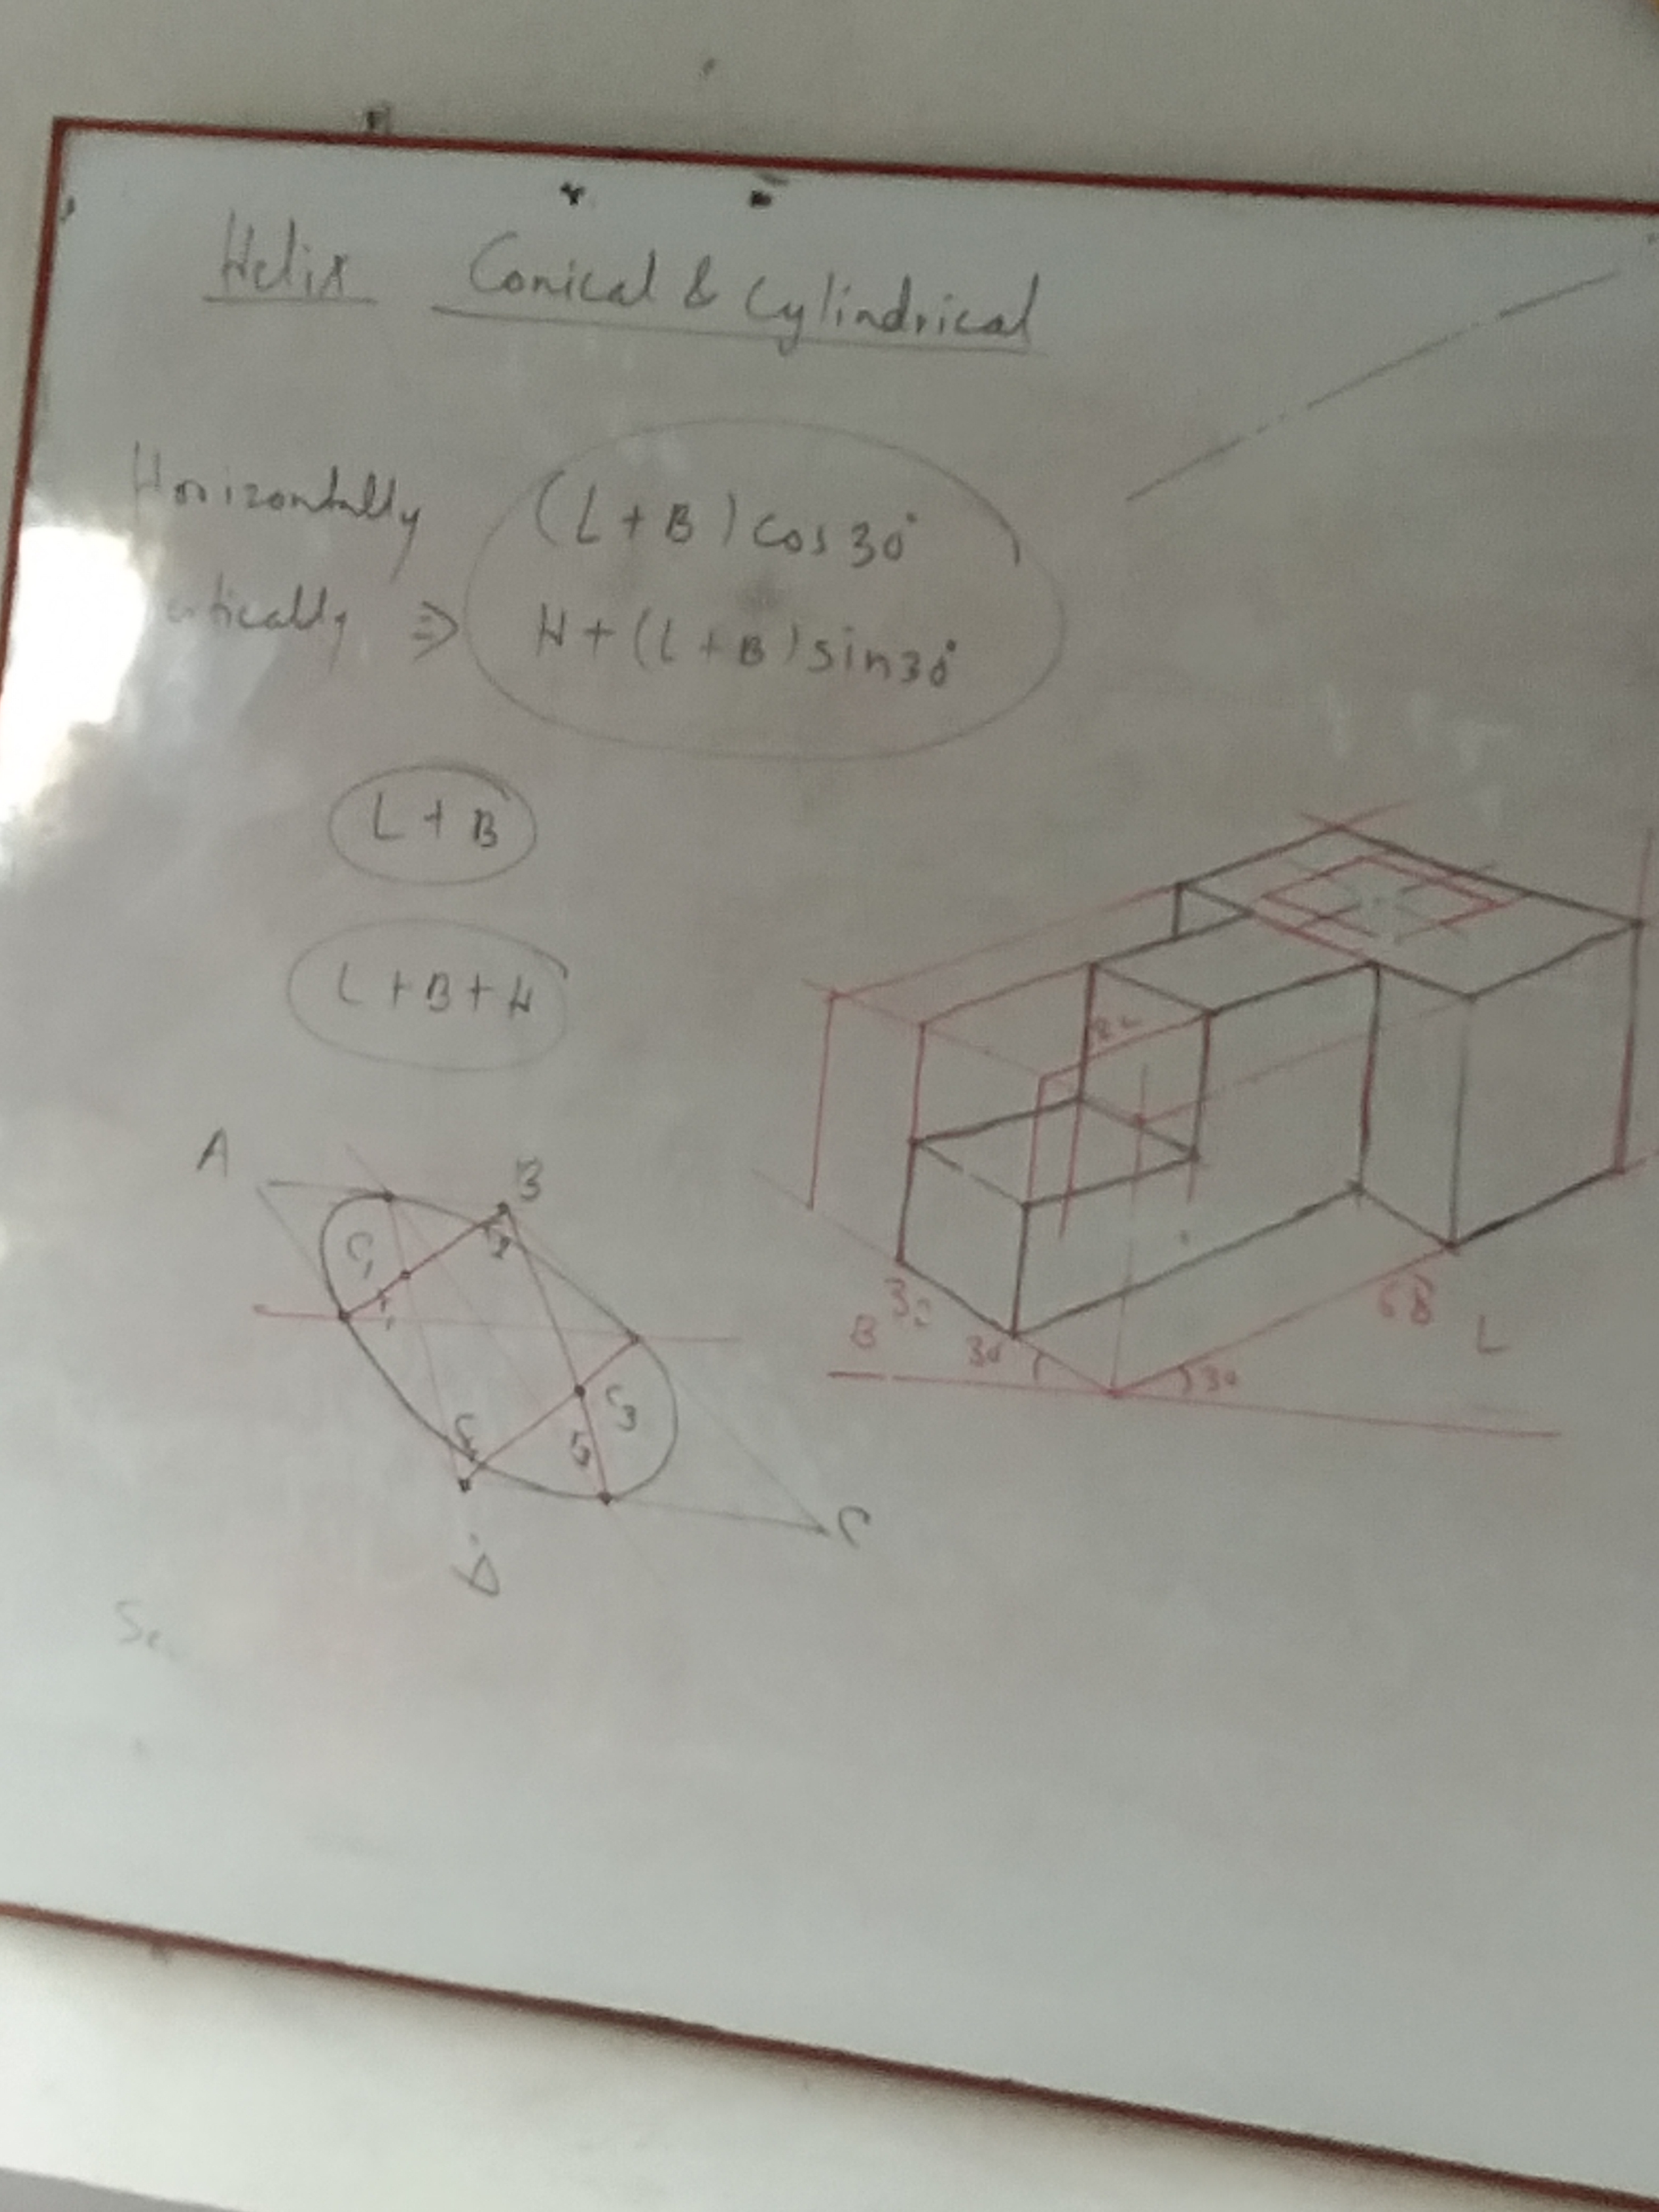 Helix Conical & Cylindrical
Horizontally (L+B) cos 30°
⇒ H+(L+B) sin 30°
L+B
L+B+H
A
B
C₁
C₃
C
D
B
30
30
68
L